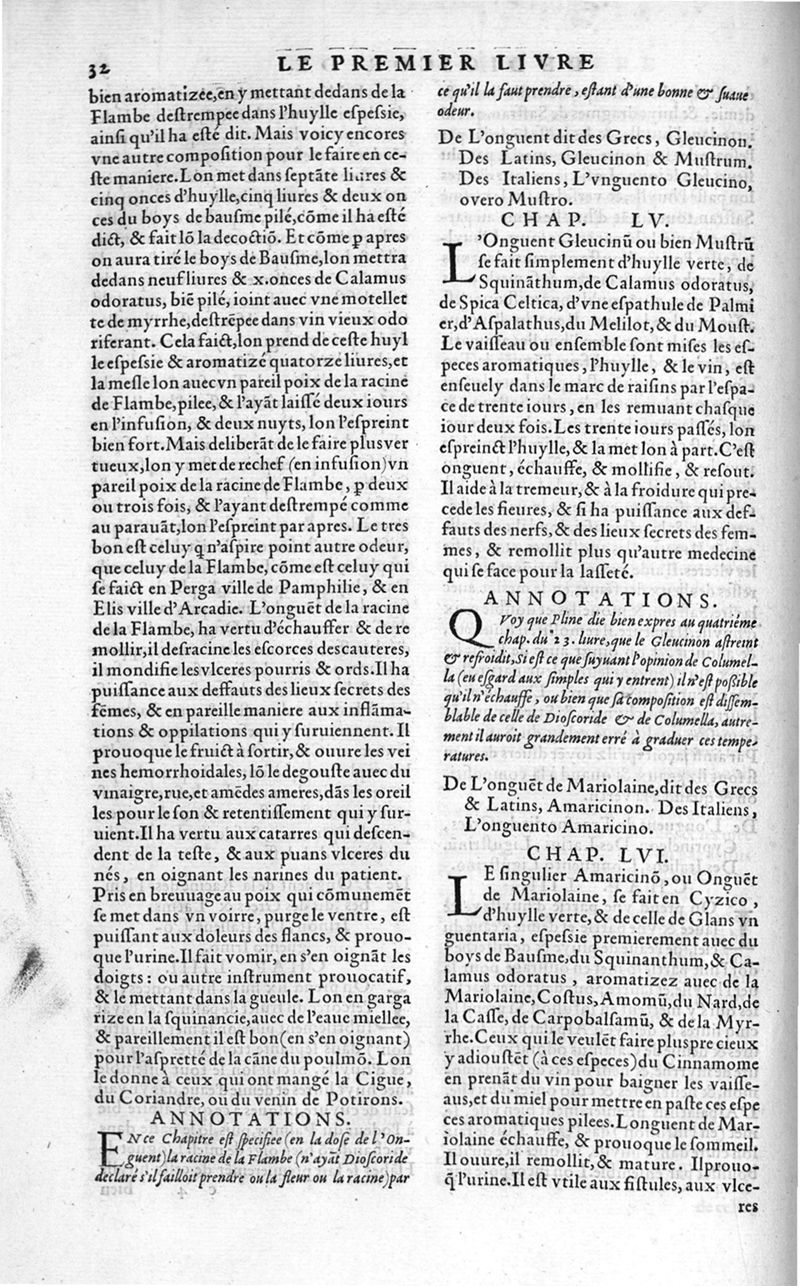 32
LE PREMIER LIVRE
bien aromatizee,en y mettant dedans de la
Flambe deſtrempee dans l'huylle eſpeſsie,
ainſi qu'il ha eſté dit. Mais voicy encores
vne autre compoſition pour le faire en ce-
ſte maniere.Lon met dans ſeptãte liures &
cinq onces d'huylle,cinq liures & deux on
ces du boys de bauſme pilé,cõme il ha eſté
dict, & fait lõ la decoctiõ. Et cõme ꝑ apres
on aura tiré le boys de Bauſme,lon mettra
dedans neuf liures & x.onces de Calamus
odoratus, biẽ pilé, ioint auec vne motellet
te de myrrhe,deſtrẽpee dans vin vieux odo
riferant. Cela faict,lon prend de ceſte huyl
le eſpeſsie & aromatizé quatorze liures,et
la meſle lon auec vn pareil poix de la racine
de Flambe,pilee,& l'ayãt laiſſé deux iours
en l'infuſion, & deux nuyts, lon l'eſpreint
bien fort.Mais deliberãt de le faire plus ver
tueux,lon y met de rechef (en infuſion)vn
pareil poix de la racine de Flambe, ꝑ deux
ou trois fois, & l'ayant deſtrempé comme
au parauãt,lon l'eſpreint par apres. Le tres
bon eſt celuy q̃ n'aſpire point autre odeur,
que celuy de la Flambe, cõme eſt celuy qui
ſe faict en Perga ville de Pamphilie, & en
Elis ville d'Arcadie. L'onguẽt de la racine
de la Flambe, ha vertu d'échauffer & de re
mollir,il defracine les eſcorces des cauteres,
il mondifie les vlceres pourris & ords.Il ha
puiſſance aux deffauts des lieux ſecrets des
fẽmes, & en pareille maniere aux inflãma-
tions & oppilations qui y ſuruiennent. Il
prouoque le fruict à ſortir, & ouure les vei
nes hemorrhoidales, lõ le degouſte auec du
vinaigre,rue,et amẽdes ameres,dãs les oreil
les pour le ſon & retentiſſement qui y ſur-
uient.Il ha vertu aux catarres qui deſcen-
dent de la teſte, & aux puans vlceres du
nés, en oignant les narines du patient.
Pris en breuuage au poix qui cõmunemẽt
ſe met dans vn voirre, purge le ventre, eſt
puiſſant aux doleurs des flancs, & prouo-
que l'urine.Il fait vomir, en s'en oignãt les
doigts: ou autre inſtrument prouocatif,
& le mettant dans la gueule. Lon en garga
rize en la ſquinancie,auec de l'eaue miellee,
& pareillement il eſt bon(en s'en oignant)
pour l'aſpretté de la cãne du poulmõ. Lon
le donne à ceux qui ont mangé la Cigue,
du Coriandre, ou du venin de Potirons.
ANNOTATIONS.
EN ce Chapitre eſt ſpecifiee (en la doſe de l'On-
guent)la racine de la Flambe (n'ayãt Dioſcoride
declaré s'il failloit prendre ou la fleur ou la racine)par
ce qu'il la faut prendre, eſtant d'une bonne & ſuaue
odeur.
De L'onguent dit des Grecs, Gleucinon.
Des Latins, Gleucinon & Muſtrum.
Des Italiens, L'vnguento Gleucino,
overo Muſtro.
CHAP. LV.
L'Onguent Gleucinũ ou bien Muſtrũ
ſe fait ſimplement d'huylle verte, de
Squinãthum,de Calamus odoratus,
de Spica Celtica, d'vne eſpathule de Palmi
er,d'Aſpalathus,du Melilot,& du Mouſt.
Le vaiſſeau ou enſemble ſont miſes les eſ-
peces aromatiques, l'huylle, & le vin, eſt
enſeuely dans le marc de raiſins par l'eſpa-
ce de trente iours, en les remuant chaſque
iour deux fois.Les trente iours paſſés, lon
eſpreinct l'huylle,& la met lon à part.C'eſt
onguent, échauffe, & mollifie, & reſout.
Il aide à la tremeur,& à la froidure qui pre-
cede les fieures, & ſi ha puiſſance aux def-
fauts des nerfs,& des lieux ſecrets des fem-
mes, & remollit plus qu'autre medecine
qui ſe face pour la laſſeté.
ANNOTATIONS.
QVoy que Pline die bien expres au quatriéme
chap. du 23. lure,que le Gleucinon aſtreint
& refroidit,ſi eſt ce que ſuyuant l'opinion de Columel-
la (eu eſgard aux ſimples qui y entrent) il n'eſt poßible
qu'il n'échauffe, ou bien que ſa compoſition eſt diſſem-
blable de celle de Dioſcoride & de Columella, autre-
ment il auroit grandement erré à graduer ces tempe-
ratures.
De L'onguẽt de Mariolaine,dit des Grecs
& Latins, Amaricinon. Des Italiens,
L'onguento Amaricino.
CHAP. LVI.
LE ſingulier Amaricinõ, ou Onguẽt
de Mariolaine, ſe fait en Cyzico,
d'huylle verte,& de celle de Glans vn
guentaria, eſpeſsie premierement auec du
boys de Bauſme,du Squinanthum,& Ca-
lamus odoratus, aromatizez auec de la
Mariolaine,Coſtus,Amomũ,du Nard,de
la Caſſe, de Carpobalſamũ, & de la Myr-
rhe.Ceux qui le veulẽt faire plus precieux
y adiouſtẽt (à ces eſpeces)du Cinnamome
en prenãt du vin pour baigner les vaiſſe-
aus,et du miel pour mettre en paſte ces eſpe
ces aromatiques pilees.Longuent de Mar-
iolaine échauffe, & prouoque le ſommeil.
Il ouure,il remollit, & mature. Il prouo-
q̃ l'urine.Il eſt vtile aux fiſtules, aux vlce-
res